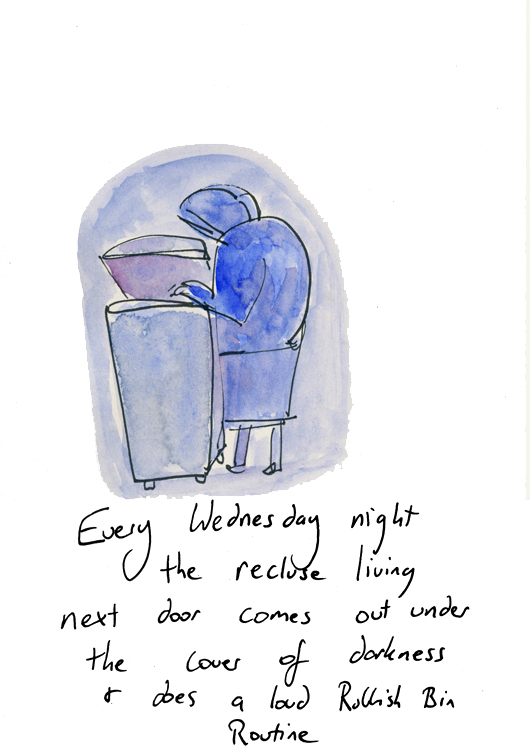 Every Wednesday night
the recluse living
next door comes out under
the cover of darkness
& does a loud Rubbish Bin
Routine